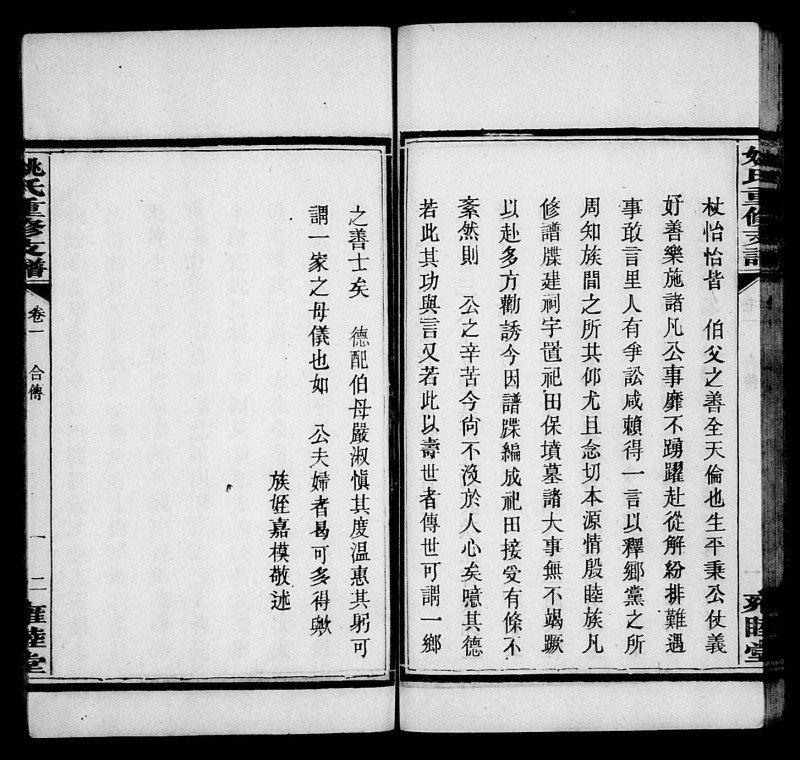 姚氏重修支譜
杖怡怡皆 伯父之善全天倫也生平秉公仗義
好善樂施諸凡公事靡不踴躍赴從解紛排難遇
事敢言里人有爭訟咸賴得一言以釋鄉黨之所
周知族間之所共仰尤且念切本源情殷睦族凡
修譜牒建祠宇置祀田保墳墓諸大事無不竭蹶
以赴多方勸誘今因譜牒編成祀田接受有條不
紊然則 公之辛苦今尙不沒於人心矣噫其德
若此其功與言又若此以壽世者傳世可謂一鄉
之善士矣 德配伯母嚴淑愼其度温惠其躬可
謂一家之母儀也如 公夫婦者曷可多得歟
族姪嘉模敬述
姚氏重修支譜
卷一 合傳
一 二
雍睦堂
雍睦堂